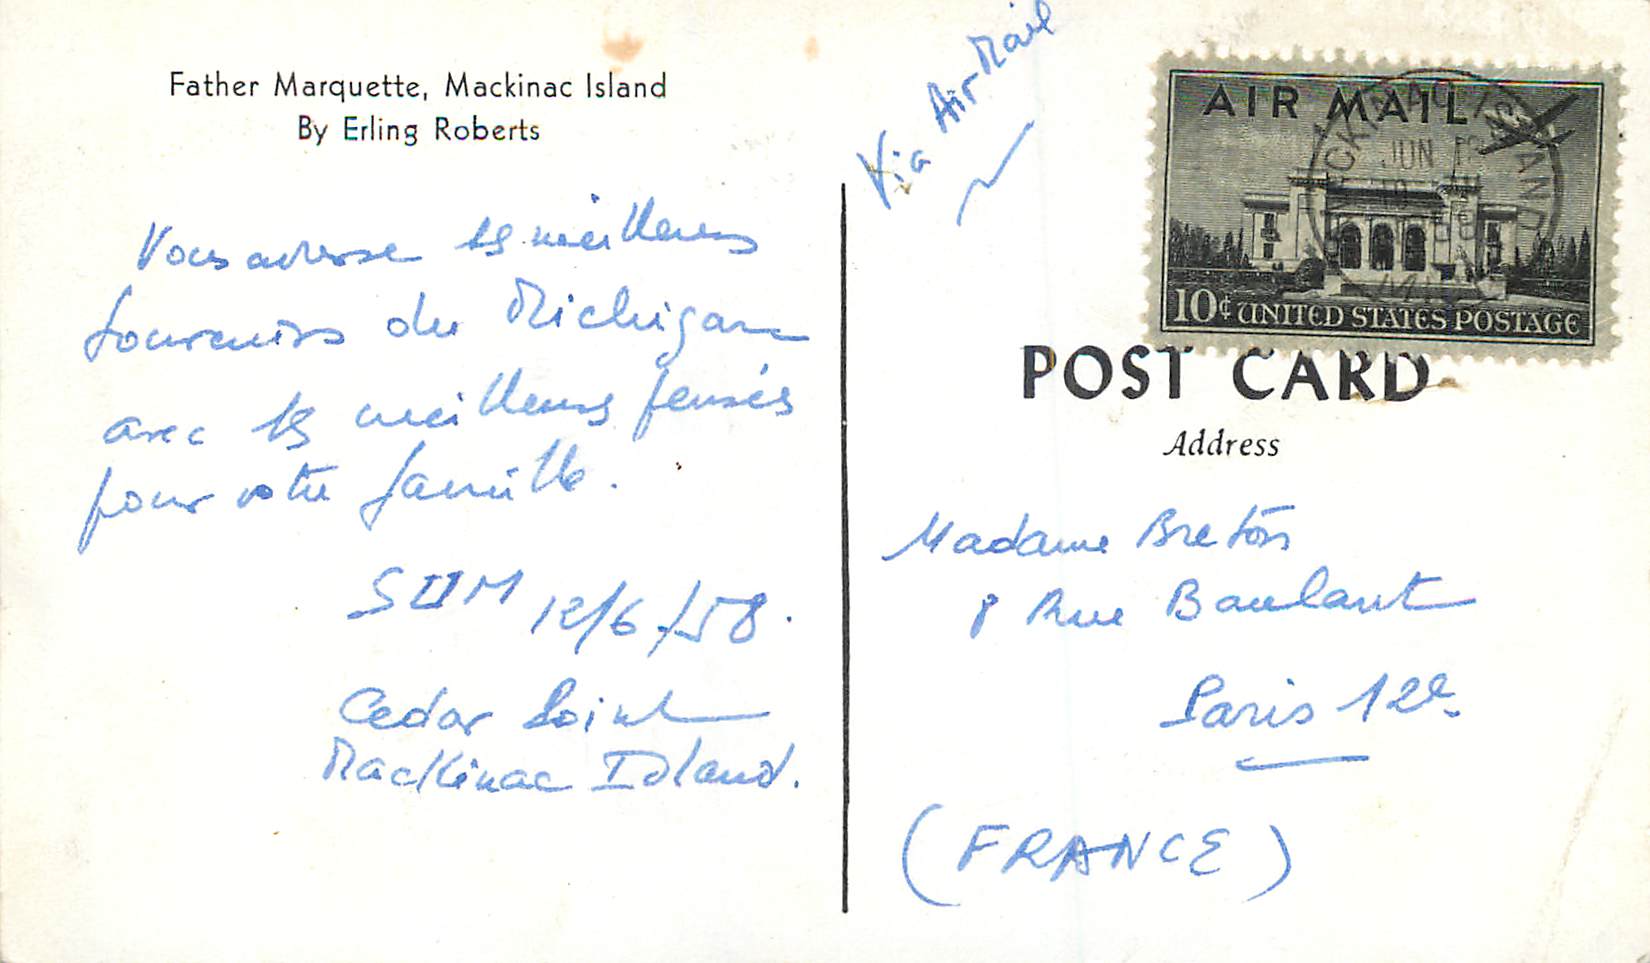 Father Marquette, Mackinac Island
By Erling Roberts
Vous adresse les meilleurs
souvenirs du Michigan
avec les meilleurs pensées
pour votre famille.
12/6/58.
Cedar Point
Mackinac Island.
Via Air Mail
AIR MAIL
MACKINAC ISLAND
JUN
MICH
10¢ UNITED STATES POSTAGE
POST CARD
Address
Madame Breton
8 Rue Baulant
Paris 12e.
(FRANCE)